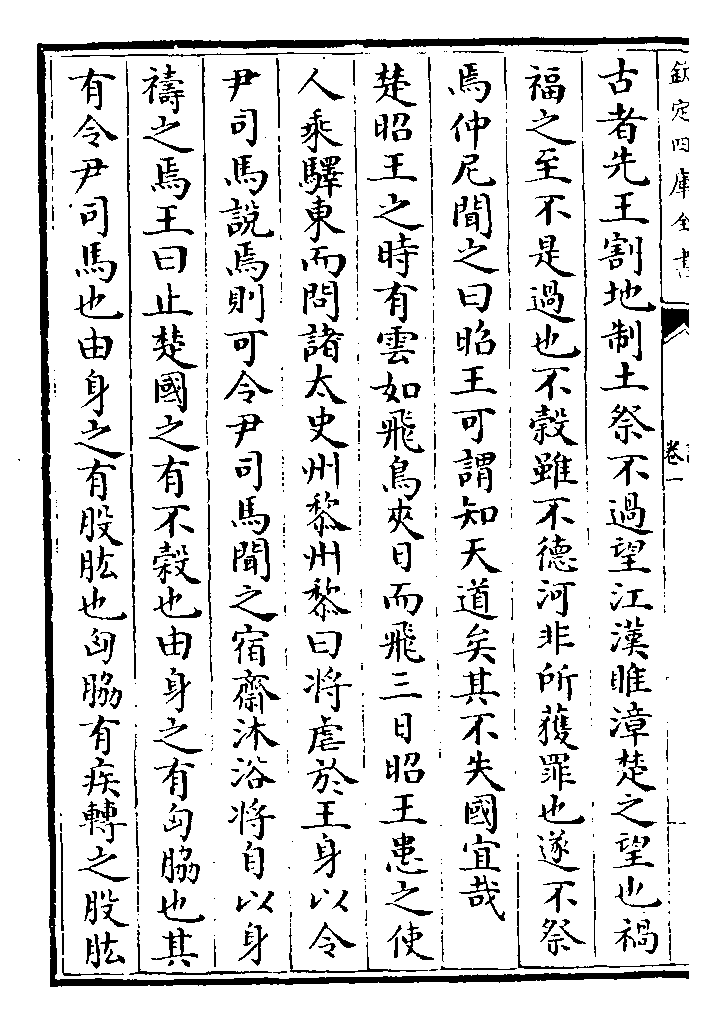 欽定四庫全書
卷一
古者先王割地制土祭不過望江漢睢漳楚之望也禍
福之至不是過也不榖雖不德河非所獲罪也遂不祭
焉仲尼聞之曰昭王可謂知天道矣其不失國宜哉
楚昭王之時有雲如飛鳥夾日而飛三日昭王患之使
人乘驛東而問諸太史州黎州黎曰將虐於王身以令
尹司馬說焉則可令尹司馬聞之宿齋沐浴將自以身
禱之焉王曰止楚國之有不榖也由身之有匈脇也其
有令尹司馬也由身之有股肱也匈脇有疾轉之股肱